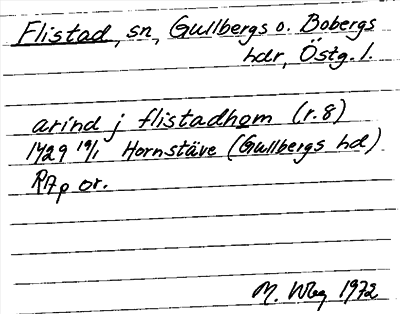 Flistad, sn, Gullbergs o. Bobergs
hdr, Östg. l.
arind j flistadhom (r.8)
1429 19/1 Hornstäve (Gullbergs hd)
RAp or.
M. Wbg 1972